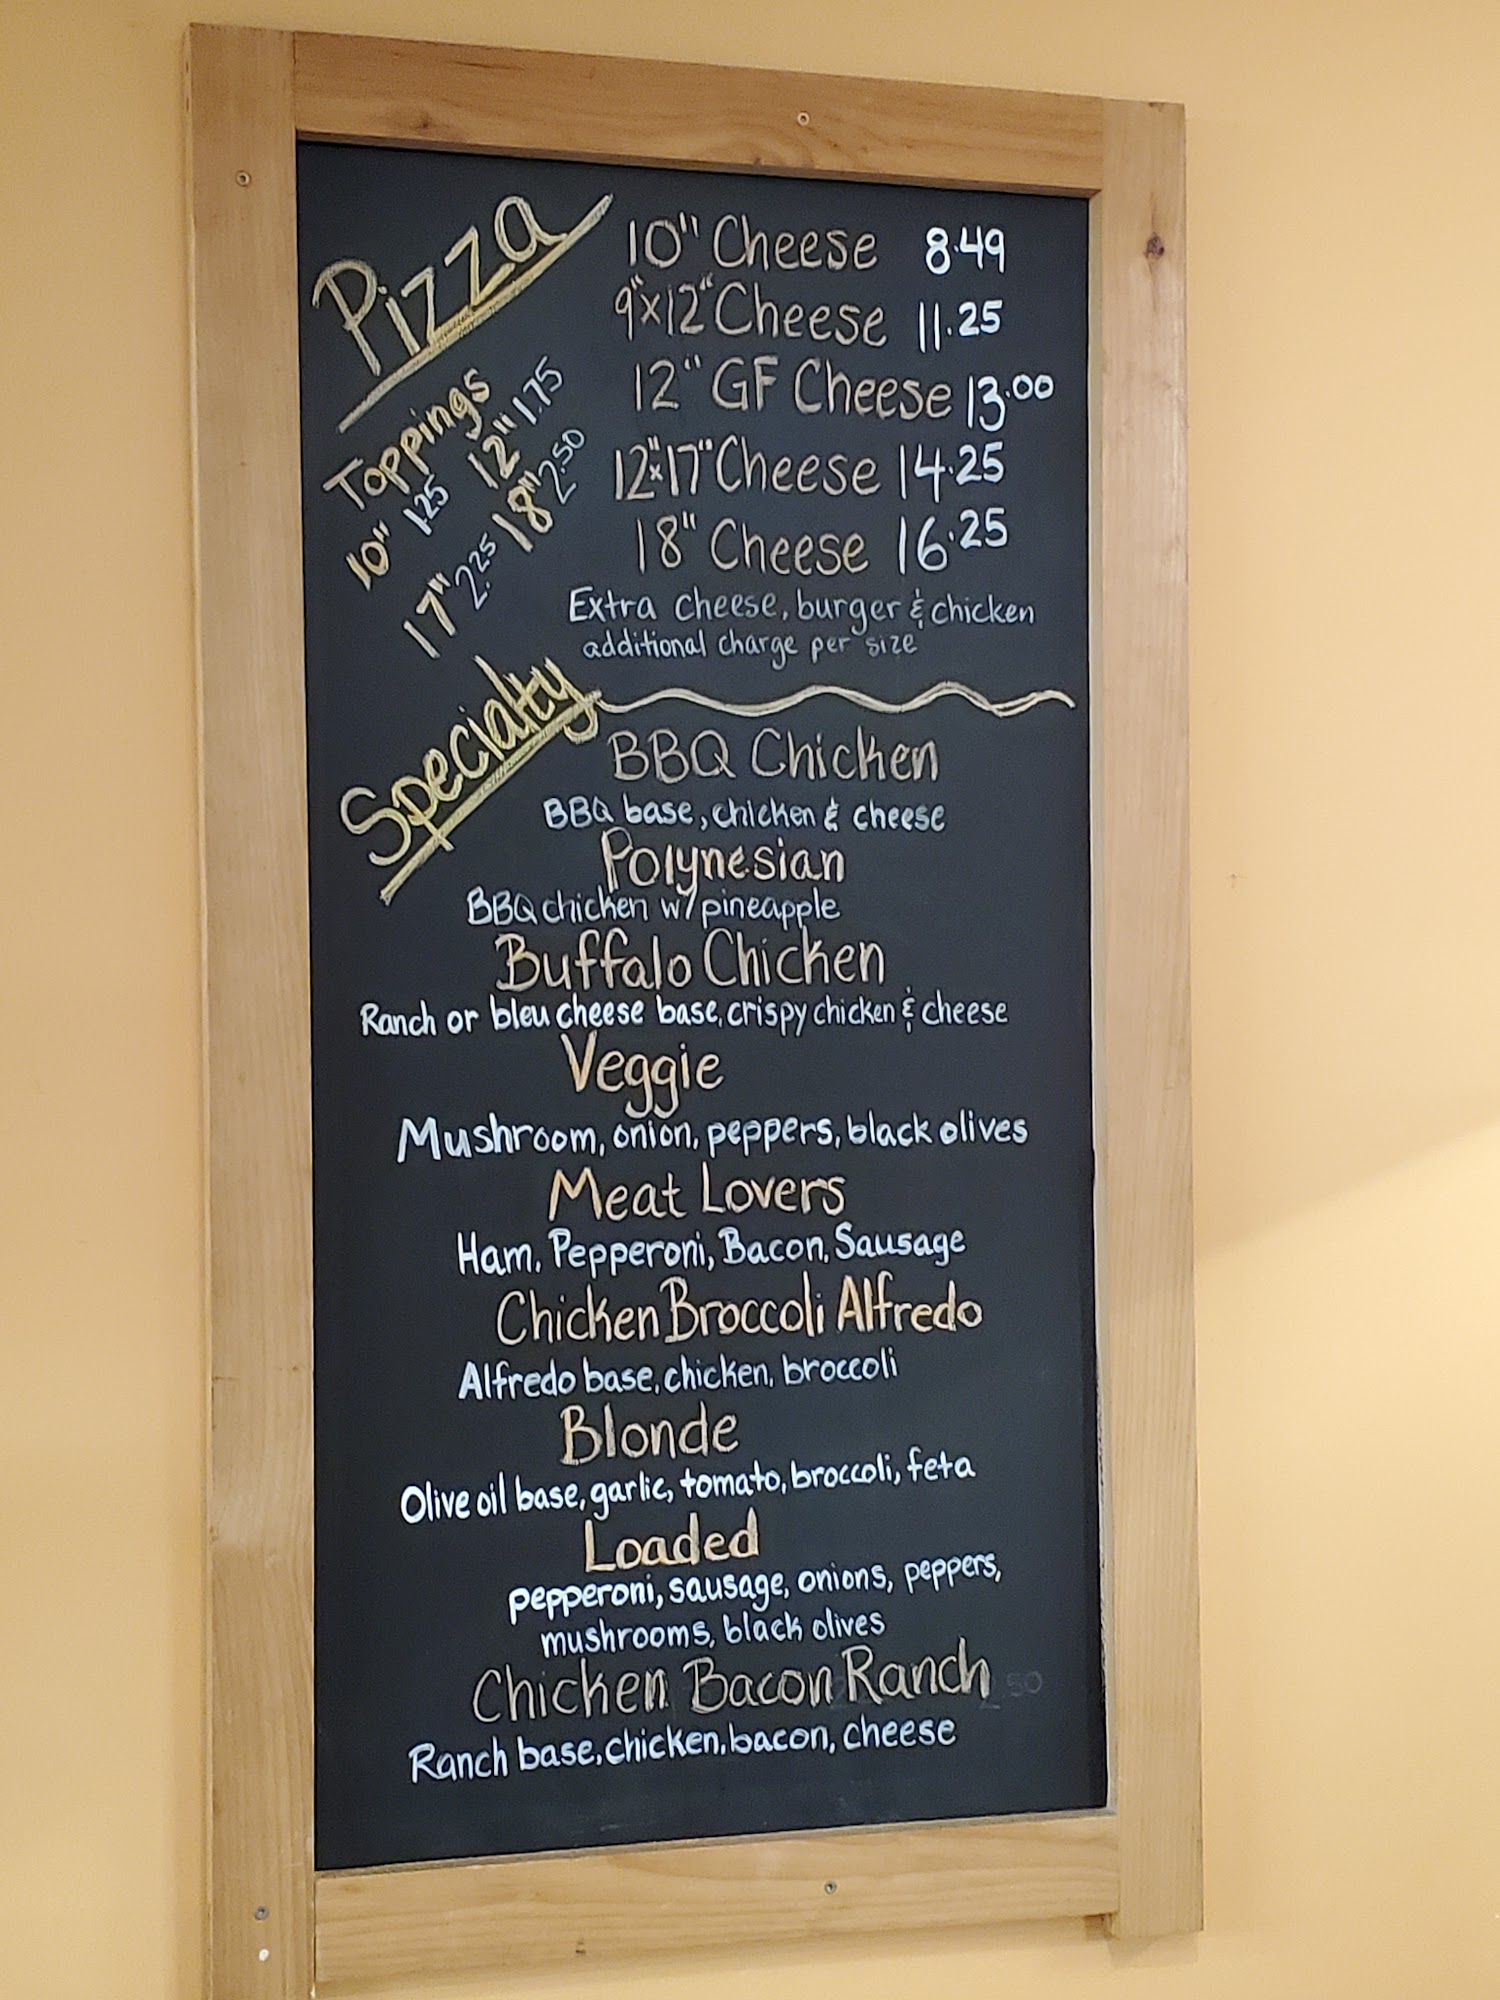 Pizza
10" Cheese 8.49
9"x12" Cheese 11.25
12" GF Cheese 13.00
12"x17" Cheese 14.25
18" Cheese 16.25
Toppings
10" 1.25 12" 1.75
17" 2.25 18" 2.50
Extra cheese, burger & chicken
additional charge per size
Specialty
BBQ Chicken
BBQ base, chicken & cheese
Polynesian
BBQ chicken w/ pineapple
Buffalo Chicken
Ranch or bleu cheese base, crispy chicken & cheese
Veggie
Mushroom, onion, peppers, black olives
Meat Lovers
Ham, Pepperoni, Bacon, Sausage
Chicken Broccoli Alfredo
Alfredo base, chicken, broccoli
Blonde
Olive oil base, garlic, tomato, broccoli, feta
Loaded
pepperoni, sausage, onions, peppers,
mushrooms, black olives
Chicken Bacon Ranch
Ranch base, chicken, bacon, cheese